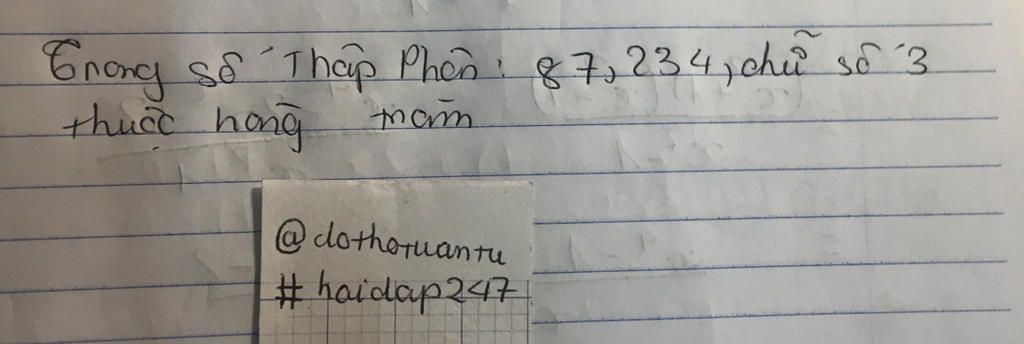 Trong số Thập Phân: 87,234, chữ số 3
thuộc hàng nào
@dothotuantu
#haidap247